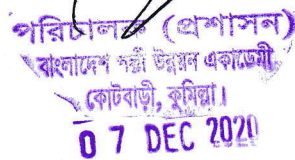 পরিচালক (প্রশাসন)
বাংলাদেশ পল্লী উন্নয়ন একাডেমী
কোটবাড়ী, কুমিল্লা।
0 7 DEC 2020